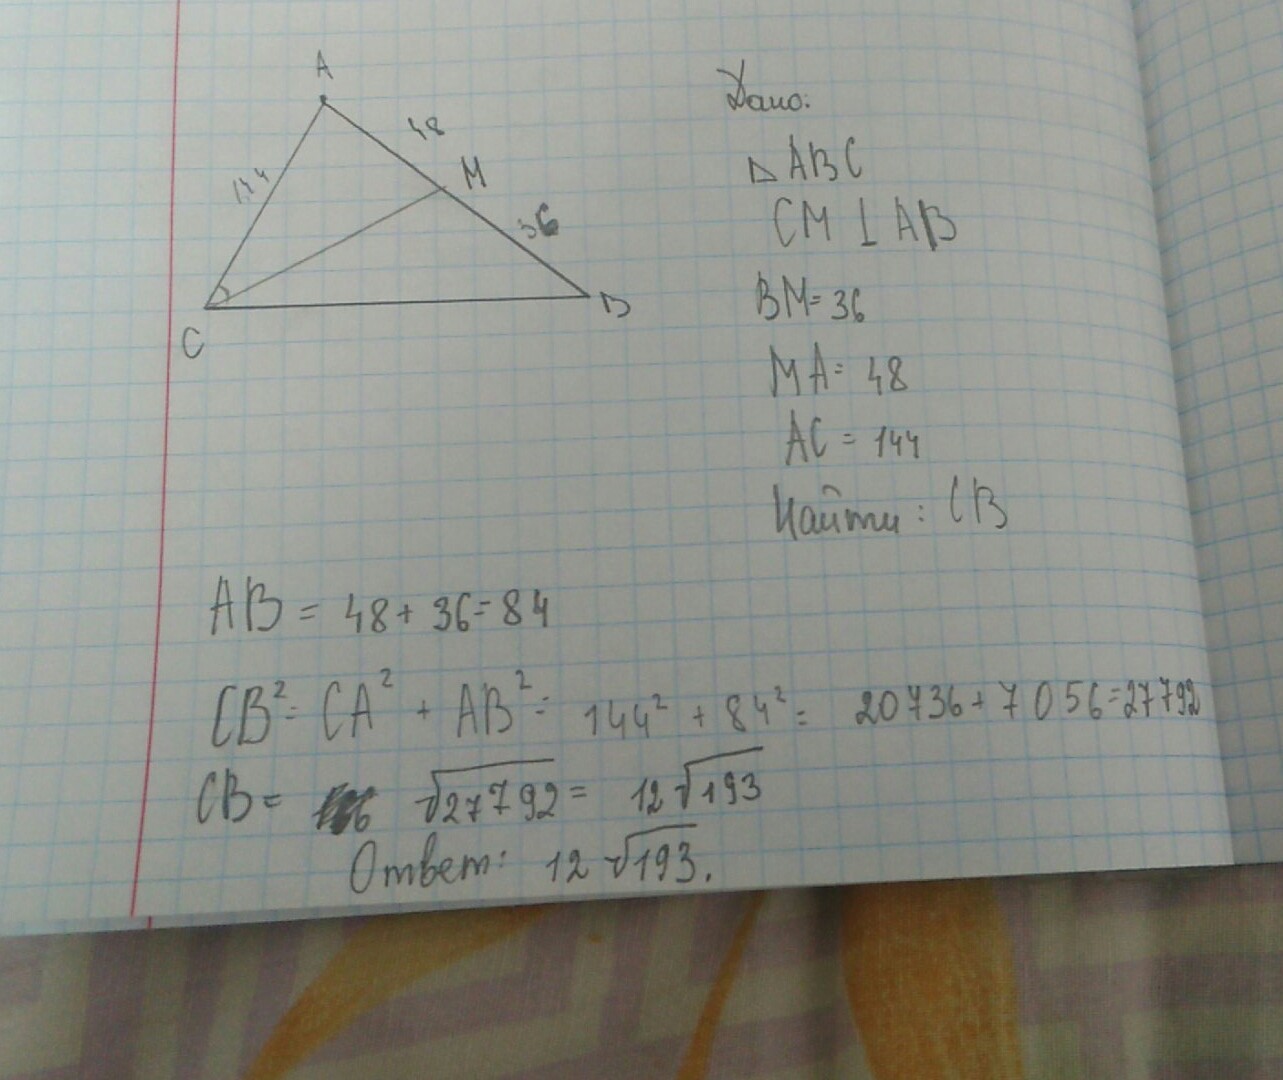 A
48
M
144
36
C
B
Дано:
△ ABC
CM ⊥ AB
BM = 36
MA = 48
AC = 144
Найти: CB
AB = 48 + 36 = 84
CB² = CA² + AB² = 144² + 84² = 20736 + 7056 = 27792
CB = √27792 = 12√193
Ответ: 12√193.